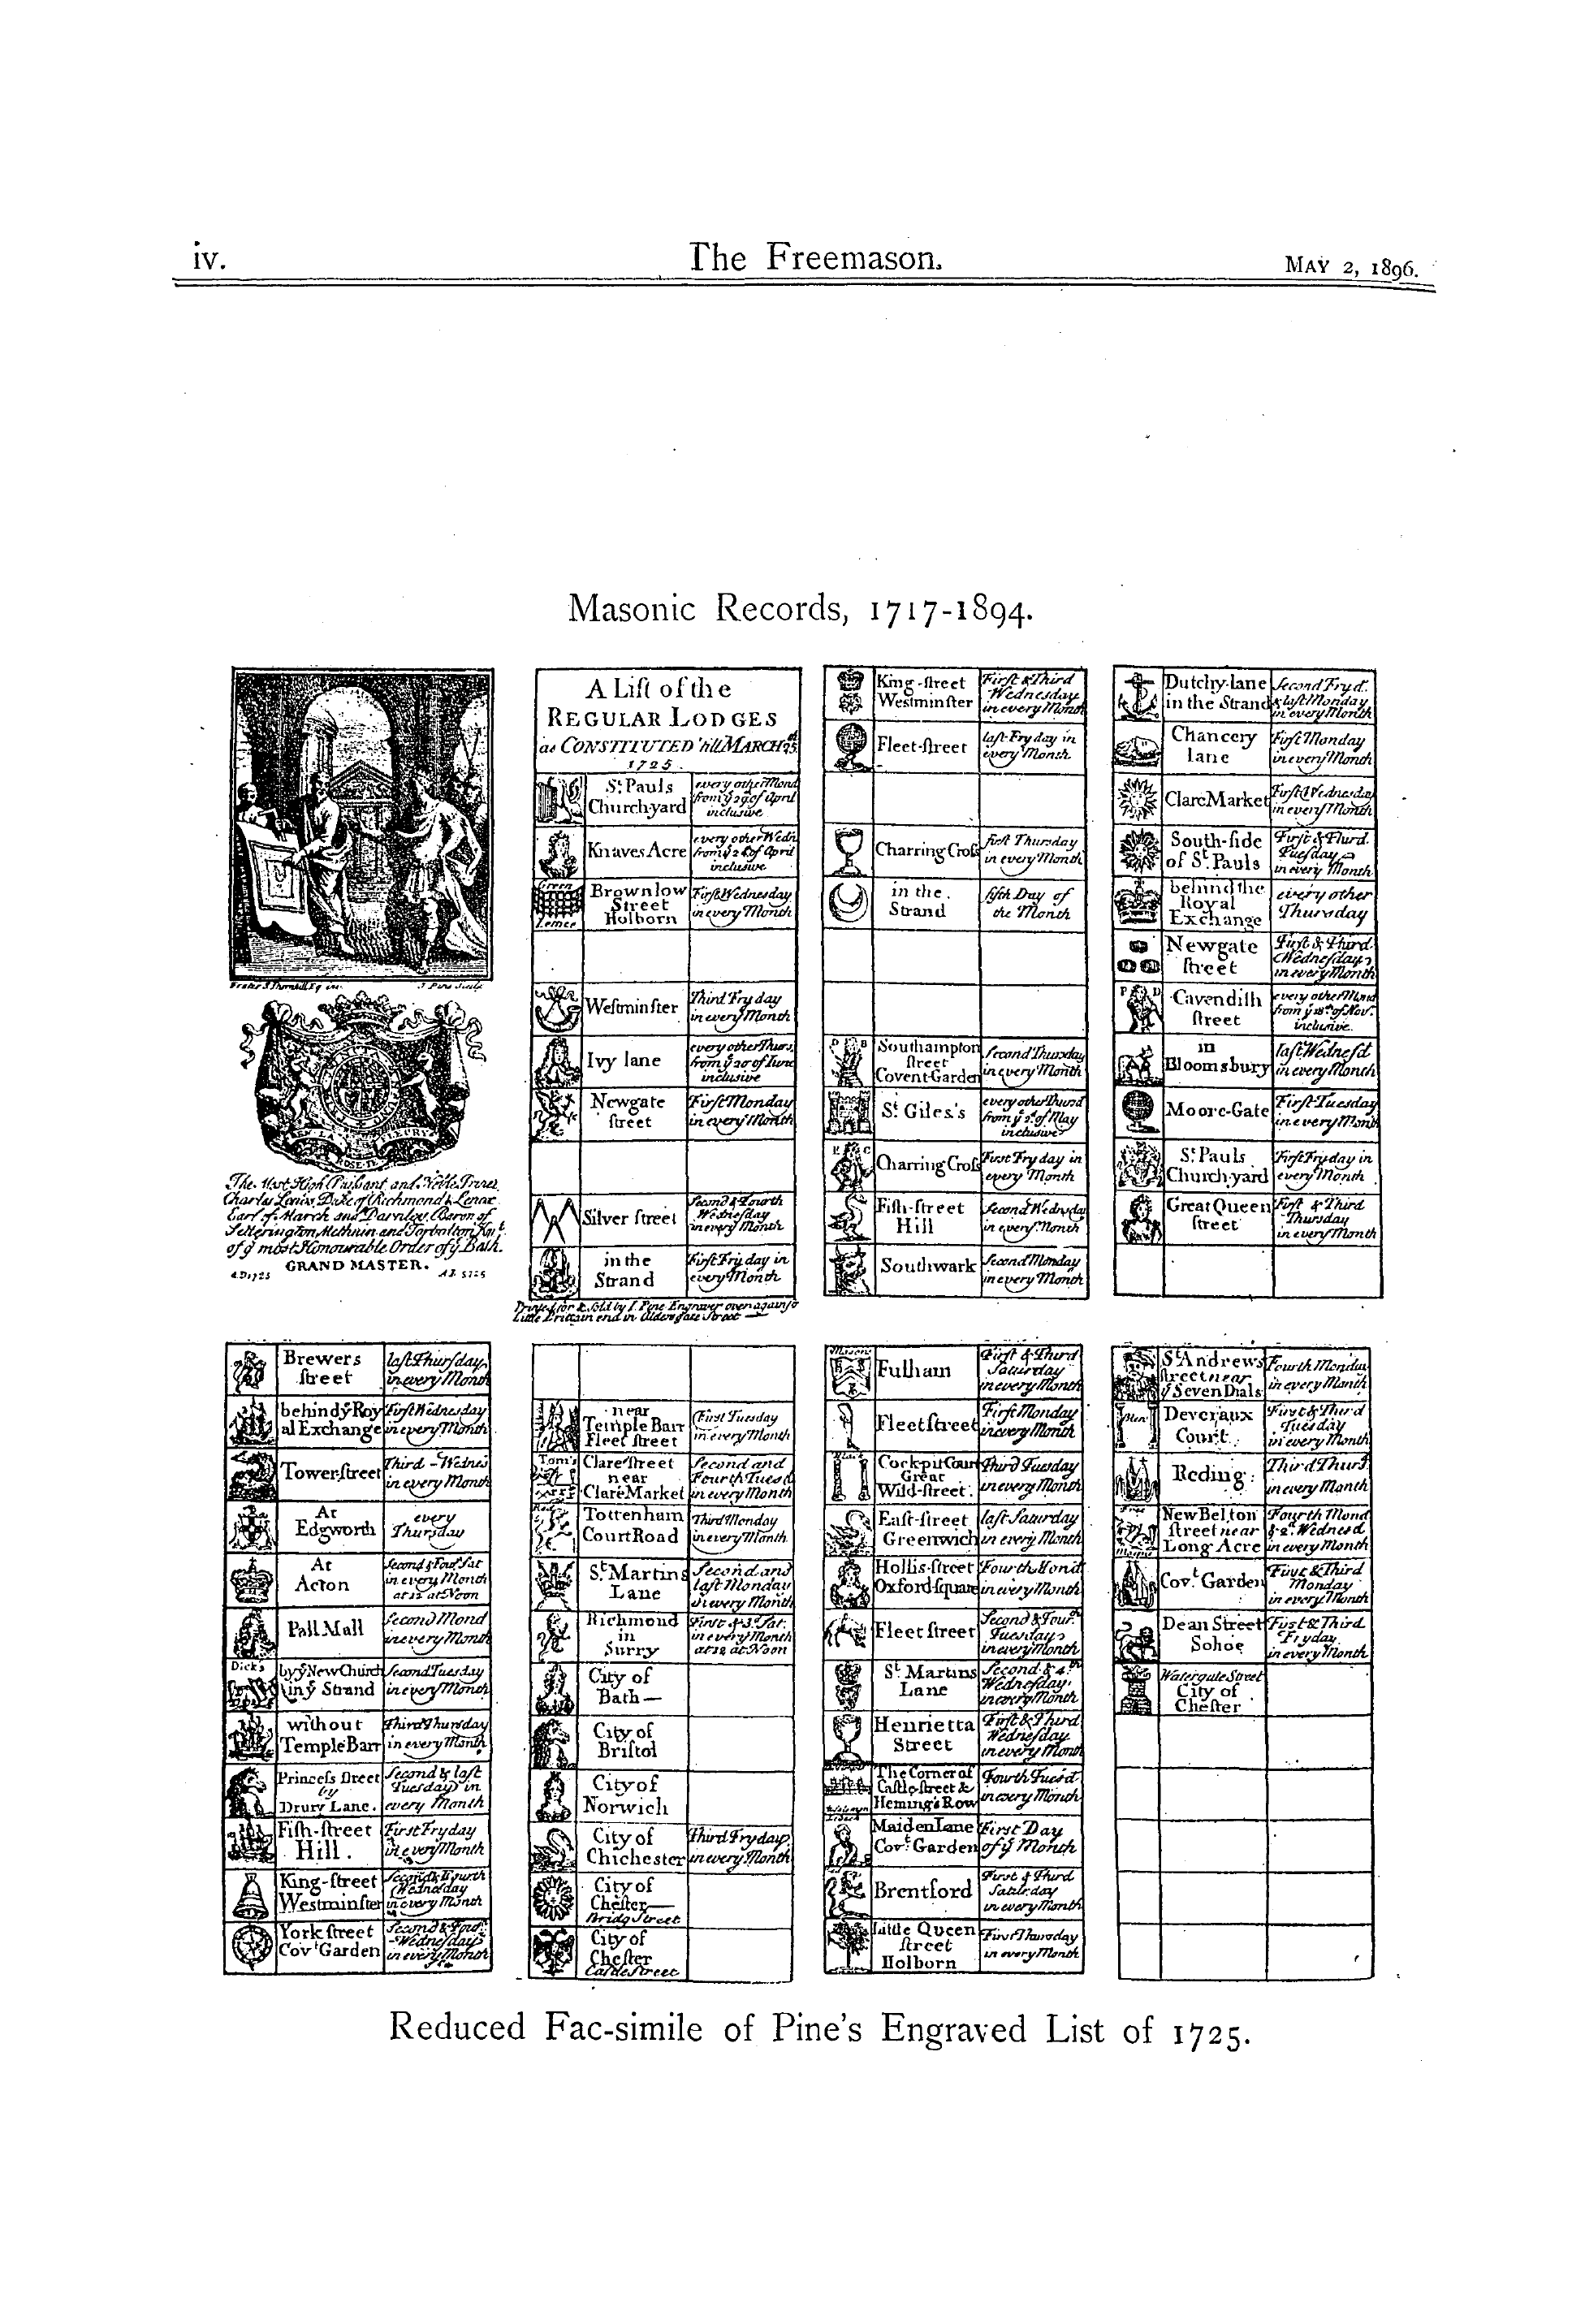 iv.
The Freemason.
MAY 2, 1896.
Masonic Records, 1717-1894.
Frater J. Thornhill Eq. inv.
J. Pine Sculp.
ROSE. TE.
The Most High Puissant and Noble Prince
Charles Lenix Duke of Richmond & Lenox
Earl of March and Darnley, Baron of
Setterington, Methuin and Torbolton, Knt.
of ye most Honourable Order of ye Bath.
GRAND MASTER.
A.D. 1725
A.L. 5725
A Liſt of the
REGULAR LODGES
as CONSTITUTED 'till MARCH 25th
1725.
St. Pauls
Church-yard
every other Mond
from ye 29 of April
inclusive
Knaves Acre
every other Wedn
from ye of April
inclusive
Green
Lemce
Brownlow
Street
Holborn
Firſt Wednesday
in every Month
Weſtminſter
Third Fryday
in every Month
Ivy lane
every other Thurs.
from ye 20 of June
inclusive
Newgate
ſtreet
Firſt Monday
in every Month
Silver ſtreet
Second & Fourth
Wednesday
in every Month
in the
Strand
Firſt Fryday in
every Month
Printed for & Sold by I. Pine Engraver over againſt
Little Brittain end in Aldersgate Street
King-ſtreet
Westminſter
Firſt & Third
Wednesday
in every Month
Fleet-ſtreet
laſt Fryday in
every Month
Charring Croſs
firſt Thursday
in every Month
in the
Strand
fifth Day of
the Month
D B
Southampton
ſtreet
Covent-Garden
Second Thursday
in every Month
St. Giles's
every other Thursd
from ye 2d of May
inclusive
K C
Charring Croſs
First Fryday in
every Month
Fiſh-ſtreet
Hill
Second Wednsday
in every Month
Southwark
Second Monday
in every Month
Dutchy-lane
in the Strand
Second Fryd.
& laſt Monday
in every Month
Chancery
lane
Firſt Monday
in every Month
Clare Market
Firſt Wednesday
in every Month
South-ſide
of St. Pauls
Firſt & Third
Tueſday
in every Month
behind the
Royal
Exchange
every other
Thursday
Newgate
ſtreet
Firſt & Third
Wedneſdays
in every Month
P D
Cavendiſh
ſtreet
every other Mond
from ye of Nov.
inclusive.
in
Bloomsbury
laſt Wedneſd
in every Month
Moore-Gate
Firſt Tuesday
in every Month
St. Pauls
Church-yard
Firſt Fryday in
every Month
Great Queen
ſtreet
Firſt & Third
Thursday
in every Month
Brewers
ſtreet
laſt Thurſday
in every Month
behind ye Roy
al Exchange
Firſt Wednesday
in every Month
Tower-ſtreet
Third Wednes
in every Month
At
Edgworth
every
Thursday
At
Acton
Second & Four Sat
in every Month
at 12 at Noon
Pall Mall
Second Mond
in every Month
Dick's
by ye New Church
in ye Strand
Second Tuesday
in every Month
without
Temple Barr
Third Thursday
in every Month
Princeſs ſtreet
by
Drury Lane.
Second & laſt
Tuesday in
every Month
Fiſh-ſtreet
Hill.
First Fryday
in every Month
King-ſtreet
Westminſter
Second & Fourth
Wednesday
in every Month
York ſtreet
Covt Garden
Second & Four.
Wedneſdays
in every Month
near
Temple Barr
Fleet ſtreet
First Tuesday
in every Month
Tom's
Clare ſtreet
near
Clare Market
Second and
Fourth Tuesd
in every Month
Tottenham
Court Road
Third Monday
in every Month
St. Martins
Lane
Second and
laſt Monday
in every Month
Richmond
in
Surry
First & 3d Sat.
in every Month
at 12 at Noon
City of
Bath—
City of
Briſtol
City of
Norwich
City of
Chicheſter
Third Fryday
in every Month
City of
Cheſter—
Bridg Street
City of
Cheſter
Castle Street
Masons
Fulham
Firſt & Third
Saturday
in every Month
Fleet ſtreet
Firſt Monday
in every Month
Black
Cockpit Court
Great
Wild-ſtreet.
Third Tuesday
in every Month
Eaſt-ſtreet
Greenwich
laſt Saturday
in every Month
Hollis-ſtreet
Oxford-ſquare
Fourth Mond
in every Month
Fleet ſtreet
Second & Four.th
Tuesdays
in every Month
St. Martins
Lane
Second & 4.th
Wednesday
in every Month
Henrietta
Street
Firſt & Third
Wednesday
in every Month
The Corner of
Caſtle-ſtreet &
Heming's Row
Fourth Tuesd
in every Month
Maiden Lane
Covt. Garden
First Day
of ye Month
Brentford
First & Third
Saturday
in every Month
Little Queen
ſtreet
Holborn
First Thursday
in every Month
St Andrews
ſtreet near
ye Seven Dials
Fourth Monday
in every Month
Blew
Deveraux
Court.
First & Third
Tuesday
in every Month
Reding
Third Thurs
in every Month
Free
Masons
New Belton
ſtreet near
Long-Acre
Fourth Mond
& 2d Wednesd
in every Month
Covt Garden
First & Third
Monday
in every Month
Dean Street
Sohoe
First & Third
Fryday
in every Month
Watergate Street
City of
Cheſter
Reduced Fac-simile of Pine's Engraved List of 1725.